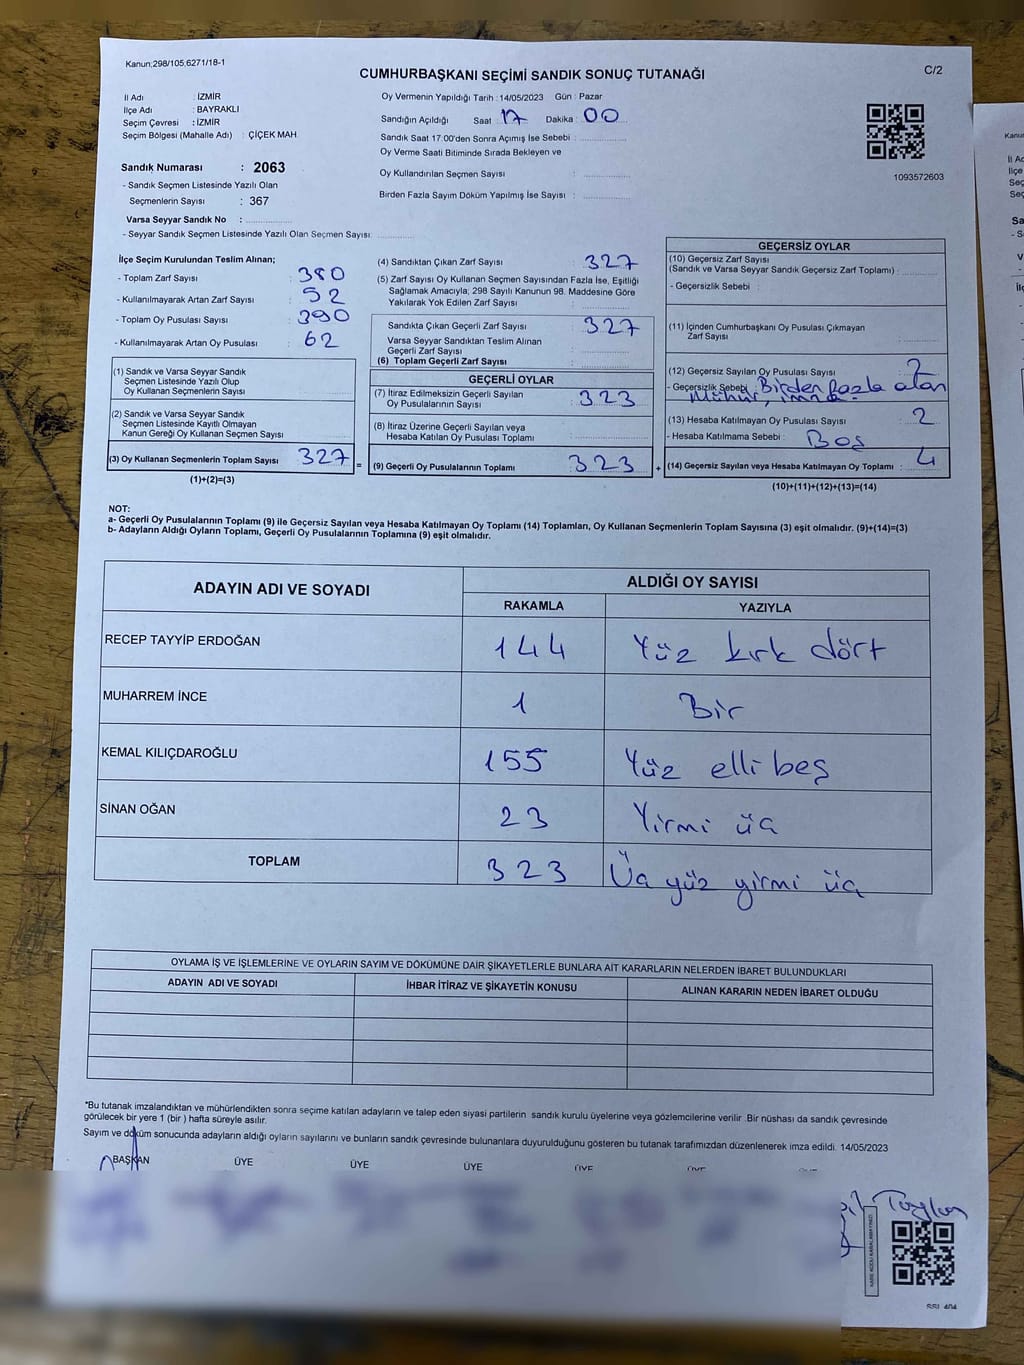 Kanun:298/105,6271/18-1
C/2
CUMHURBAŞKANI SEÇİMİ SANDIK SONUÇ TUTANAĞI
İl Adı : İZMİR
İlçe Adı : BAYRAKLI
Seçim Çevresi : İZMİR
Seçim Bölgesi (Mahalle Adı) : ÇİÇEK MAH.
Sandık Numarası : 2063
- Sandık Seçmen Listesinde Yazılı Olan
Seçmenlerin Sayısı : 367
Varsa Seyyar Sandık No :
- Seyyar Sandık Seçmen Listesinde Yazılı Olan Seçmen Sayısı:
Oy Vermenin Yapıldığı Tarih : 14/05/2023 Gün : Pazar
Sandığın Açıldığı Saat : 17 Dakika : 00
Sandık Saat 17:00'den Sonra Açımış İse Sebebi :
Oy Verme Saati Bitiminde Sırada Bekleyen ve
Oy Kullandırılan Seçmen Sayısı :
Birden Fazla Sayım Döküm Yapılmış İse Sayısı :
1093572603
İlçe Seçim Kurulundan Teslim Alınan;
- Toplam Zarf Sayısı : 380
- Kullanılmayarak Artan Zarf Sayısı : 52
- Toplam Oy Pusulası Sayısı : 390
- Kullanılmayarak Artan Oy Pusulası : 62
(1) Sandık ve Varsa Seyyar Sandık
Seçmen Listesinde Yazılı Olup
Oy Kullanan Seçmenlerin Sayısı :
(2) Sandık ve Varsa Seyyar Sandık
Seçmen Listesinde Kayıtlı Olmayan
Kanun Gereği Oy Kullanan Seçmen Sayısı :
(3) Oy Kullanan Seçmenlerin Toplam Sayısı : 327 =
(1)+(2)=(3)
(4) Sandıktan Çıkan Zarf Sayısı : 327
(5) Zarf Sayısı Oy Kullanan Seçmen Sayısından Fazla İse, Eşitliği
Sağlamak Amacıyla; 298 Sayılı Kanunun 98. Maddesine Göre
Yakılarak Yok Edilen Zarf Sayısı :
Sandıkta Çıkan Geçerli Zarf Sayısı : 327
Varsa Seyyar Sandıktan Teslim Alınan
Geçerli Zarf Sayısı :
(6) Toplam Geçerli Zarf Sayısı :
GEÇERLİ OYLAR
(7) İtiraz Edilmeksizin Geçerli Sayılan
Oy Pusulalarının Sayısı : 323
(8) İtiraz Üzerine Geçerli Sayılan veya
Hesaba Katılan Oy Pusulası Toplamı :
(9) Geçerli Oy Pusulalarının Toplamı : 323 +
GEÇERSİZ OYLAR
(10) Geçersiz Zarf Sayısı
(Sandık ve Varsa Seyyar Sandık Geçersiz Zarf Toplamı) :
- Geçersizlik Sebebi :
(11) İçinden Cumhurbaşkanı Oy Pusulası Çıkmayan
Zarf Sayısı :
(12) Geçersiz Sayılan Oy Pusulası Sayısı : 2
- Geçersizlik Sebebi : Birden fazla atan
Mühür, imza.
(13) Hesaba Katılmayan Oy Pusulası Sayısı : 2
- Hesaba Katılmama Sebebi : Boş
(14) Geçersiz Sayılan veya Hesaba Katılmayan Oy Toplamı : 4
(10)+(11)+(12)+(13)=(14)
NOT:
a- Geçerli Oy Pusulalarının Toplamı (9) ile Geçersiz Sayılan veya Hesaba Katılmayan Oy Toplamı (14) Toplamları, Oy Kullanan Seçmenlerin Toplam Sayısına (3) eşit olmalıdır. (9)+(14)=(3)
b- Adayların Aldığı Oyların Toplamı, Geçerli Oy Pusulalarının Toplamına (9) eşit olmalıdır.
ADAYIN ADI VE SOYADI ALDIĞI OY SAYISI
RAKAMLA YAZIYLA
RECEP TAYYİP ERDOĞAN 144 Yüz kırk dört
MUHARREM İNCE 1 Bir
KEMAL KILIÇDAROĞLU 155 Yüz elli beş
SİNAN OĞAN 23 Yirmi üç
TOPLAM 323 Üç yüz yirmi üç
OYLAMA İŞ VE İŞLEMLERİNE VE OYLARIN SAYIM VE DÖKÜMÜNE DAİR ŞİKAYETLERLE BUNLARA AİT KARARLARIN NELERDEN İBARET BULUNDUKLARI
ADAYIN ADI VE SOYADI İHBAR İTİRAZ VE ŞİKAYETİN KONUSU ALINAN KARARIN NEDEN İBARET OLDUĞU
*Bu tutanak imzalandıktan ve mühürlendikten sonra seçime katılan adayların ve talep eden siyasi partilerin sandık kurulu üyelerine veya gözlemcilerine verilir .Bir nüshası da sandık çevresinde
görülecek bir yere 1 (bir ) hafta süreyle asılır.
Sayım ve döküm sonucunda adayların aldığı oyların sayılarını ve bunların sandık çevresinde bulunanlara duyurulduğunu gösteren bu tutanak tarafımızdan düzenlenerek imza edildi. 14/05/2023
BAŞKAN ÜYE ÜYE ÜYE ÜYE ÜYE